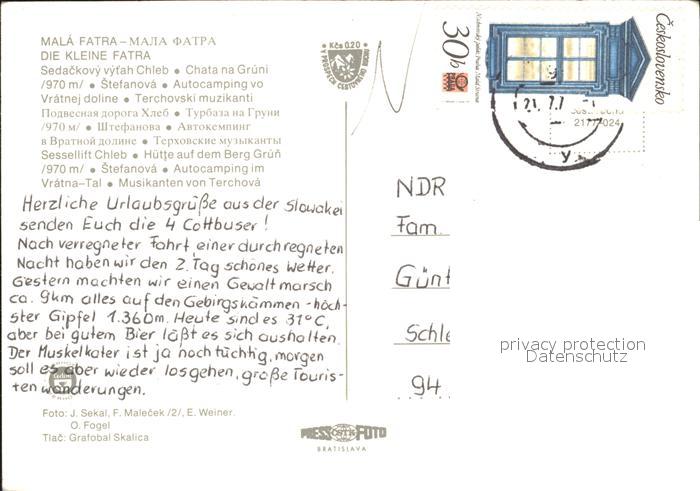 MALÁ FATRA – МАЛА ФАТРА
DIE KLEINE FATRA
Sedačkový výťah Chleb • Chata na Grúni
/970 m/ • Štefanová • Autocamping vo
Vrátnej doline • Terchovski muzikanti
Подвесная дорога Хлеб • Турбаза на Груни
/970 м/ • Штефанова • Автокемпинг
в Вратной долине • Терховские музыканты
Sessellift Chleb • Hütte auf dem Berg Grúň
/970 m/ • Štefanová • Autocamping im
Vrátna–Tal • Musikanten von Terchová
Herzliche Urlaubsgrüße aus der Slowakei
senden Euch die 4 Cottbuser!
Nach verregneter Fahrt, einer durchregneten
Nacht haben wir den 2. Tag schönes Wetter.
Gestern machten wir einen Gewaltmarsch
ca. 9km alles auf den Gebirgskämmen - höch-
ster Gipfel 1.360m. Heute sind es 31°C,
aber bei gutem Bier läßt es sich aushalten.
Der Muskelkater ist ja noch tüchtig, morgen
soll es aber wieder losgehen, große Touris-
ten wanderungen.
Foto: J. Sekal, F. Maleček /2/, E. Weiner.
O. Fogel
Tlač: Grafobal Skalica
Kčs 0,20
PRESS ČSTK FOTO
BRATISLAVA
30h
Československo
21. 7. 7
NDR
Fam.
Günt
Schle
94
privacy protection
Datenschutz